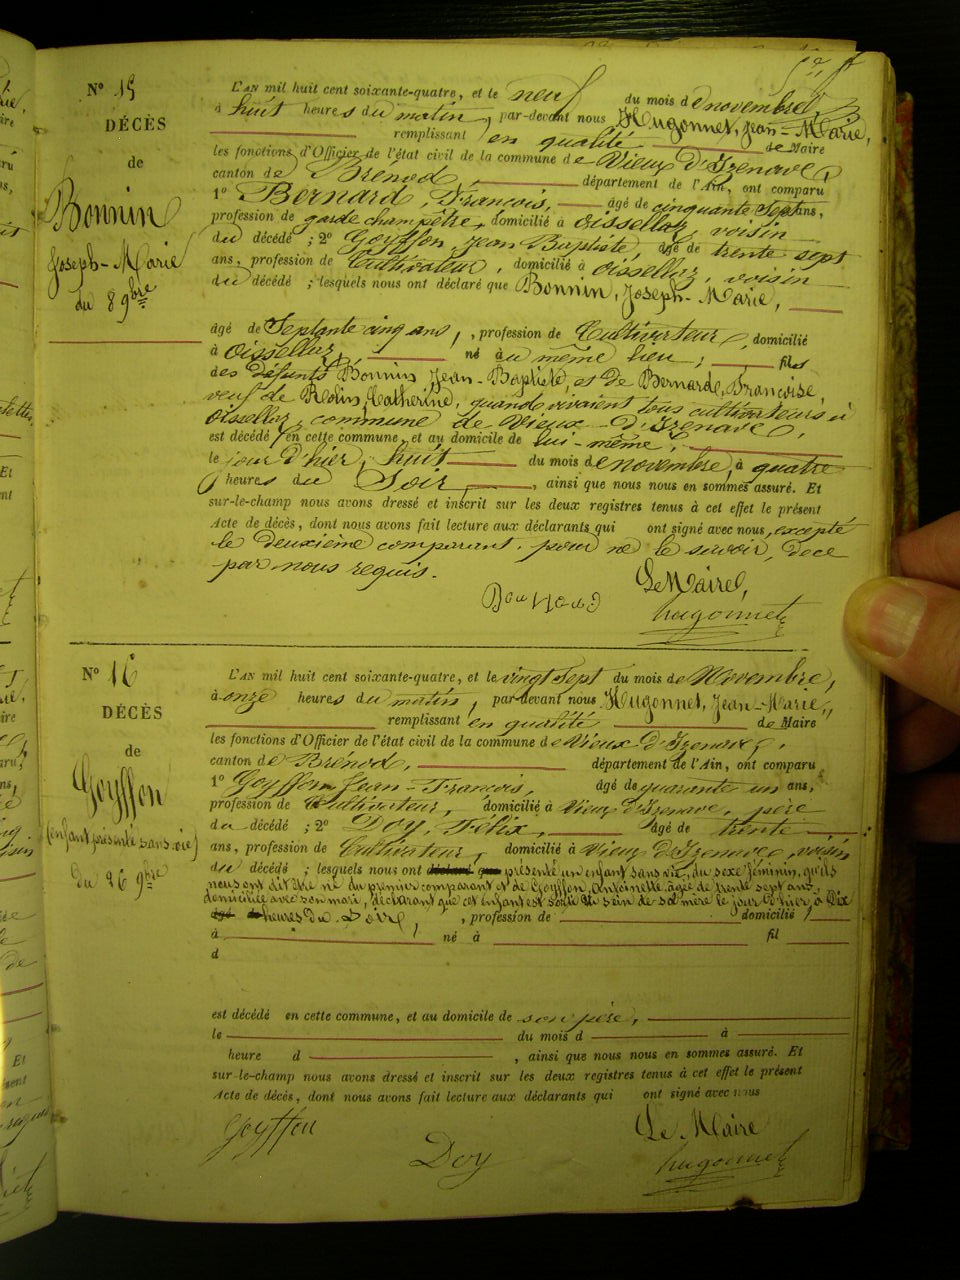 N° 15
DÉCÈS
de
Bonnin
Joseph-Marie
du 8 9bre
L'AN mil huit cent soixante-quatre, et le neuf du mois de novembre,
à huit heures du matin, par-devant nous Hugonnet, Jean-Marie,
remplissant en qualité de Maire
les fonctions d'Officier de l'état civil de la commune de Vieux d'Izenave,
canton de Brenod, département de l'Ain, ont comparu
1° Bernard, François, âgé de cinquante sept ans,
profession de garde champêtre, domicilié à Oisselaz, voisin
du décédé ; 2° Goyffon, Jean Baptiste, âgé de trente sept
ans, profession de Cultivateur, domicilié à Oisselaz, voisin
du décédé ; lesquels nous ont déclaré que Bonnin, Joseph-Marie,
âgé de Septante cinq ans, profession de Cultivateur, domicilié
à Oisselaz, né au même lieu, fils
des défunts Bonnin Jean-Baptiste, et de Bernarde, Françoise,
veuf de Rolin, Catherine, quand vivaient tous cultivateurs à
Oisselaz, commune de Vieux-d'Izenave,
est décédé en cette commune, et au domicile de lui-même,
le jour d'hier, huit du mois de novembre, à quatre
heures du Soir, ainsi que nous nous en sommes assuré. Et
sur-le-champ nous avons dressé et inscrit sur les deux registres tenus à cet effet le présent
Acte de décès, dont nous avons fait lecture aux déclarants qui ont signé avec nous, excepté
le deuxième comparant, pour ne le savoir, de ce
par nous requis.
Le Maire,
Bernard
hugonnet
N° 16
DÉCÈS
de
Goyffon
(enfant présenté sans vie)
du 26 9bre
L'AN mil huit cent soixante-quatre, et le vingt Sept du mois de Novembre,
à onze heures du matin, par-devant nous Hugonnet, Jean-Marie,
remplissant en qualité de Maire
les fonctions d'Officier de l'état civil de la commune de Vieux d'Izenave,
canton de Brenod, département de l'Ain, ont comparu
1° Goyffon Jean-François, âgé de quarante un ans,
profession de Cultivateur, domicilié à Vieux d'Izenave, père
du décédé ; 2° Doy, Félix, âgé de trente
ans, profession de Cultivateur, domicilié à Vieux d'Izenave, voisin
du décédé ; lesquels nous ont déclaré que présenté un enfant sans vie, du sexe féminin, qu'ils
nous ont dit être né du premier comparant et de Goyffon, Antoinette âgée de trente sept ans,
domiciliée avec son mari, déclarant que cet enfant est sorti du sein de sa mère le jour d'hier, à Dix
âgé de heures du Soir, profession de domicilié
à né à fil
d
est décédé en cette commune, et au domicile de son père,
le du mois d à
heure d , ainsi que nous nous en sommes assuré. Et
sur-le-champ nous avons dressé et inscrit sur les deux registres tenus à cet effet le présent
Acte de décès, dont nous avons fait lecture aux déclarants qui ont signé avec nous
Goyffon
Doy
Le Maire
hugonnet